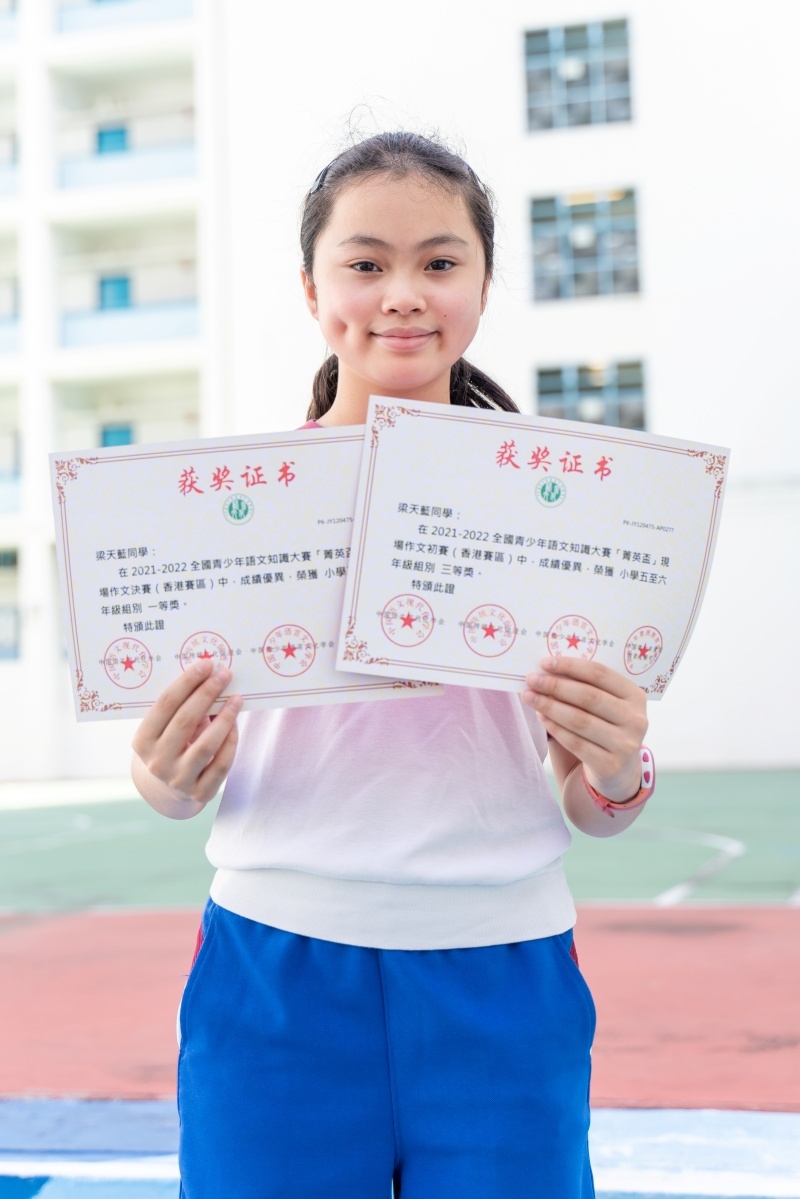 获奖证书
P6-JY120475
梁天藍同學：
在 2021-2022 全國青少年語文知識大賽「菁英盃
場作文決賽（香港賽區）中，成績優異，榮獲 小學
年級組別 一等獎。
特頒此證
获奖证书
P6-JY120475-AP0277
梁天藍同學：
在 2021-2022 全國青少年語文知識大賽「菁英盃」現
場作文初賽（香港賽區）中，成績優異，榮獲 小學五至六
年級組別 三等獎。
特頒此證